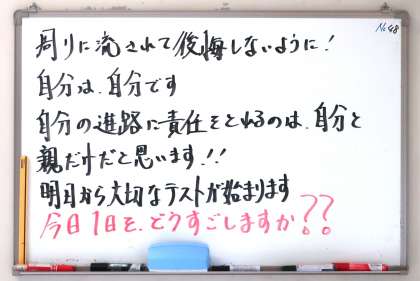 No.48
周りに流されて後悔しないように!
自分は、自分です
自分の進路に責任をとれるのは、自分と
親だけだと思います!!
明日から大切なテストが始まります
今日1日を、どうすごしますか??